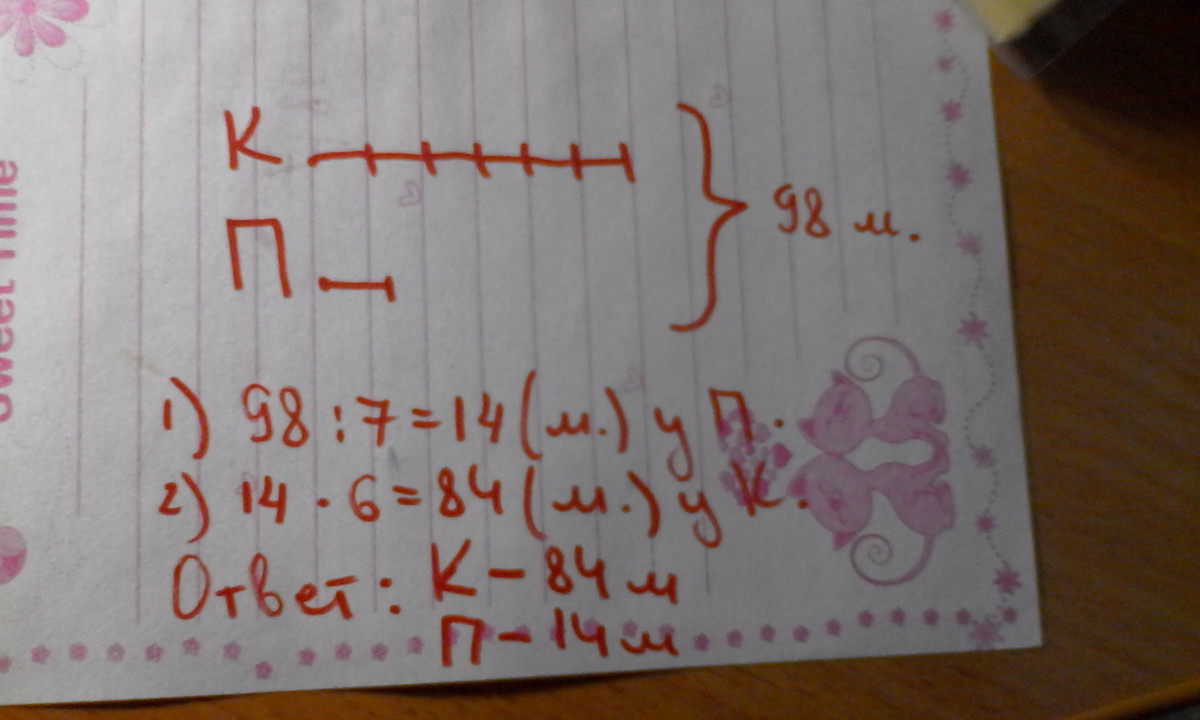 К
98 м.
П
1) 98 : 7 = 14 (м.) у П.
2) 14 · 6 = 84 (м.) у К.
Ответ: К - 84 м
П - 14 м
Sweet Time